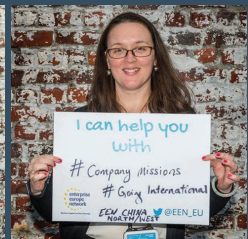 I can help you
with
# Company Missions
# Going International
enterprise
europe
network
EEN CHINA
NORTH/WEST
@EEN_EU